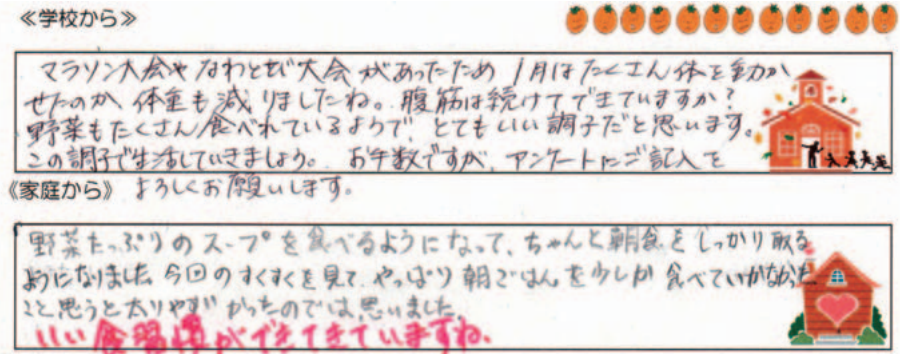 ≪学校から≫
マラソン大会やなわとび大会があったため 1月はたくさん体を動か
せたのか、体重も減りましたね。腹筋は続けてできていますか？
野菜もたくさん食べれているようで、とてもいい調子だと思います。
この調子で生活していきましょう。 お手数ですが、アンケートにご記入を
よろしくお願いします。
≪家庭から≫
野菜たっぷりのスープを食べるようになって、ちゃんと朝食をしっかり取る
ようになりました。今回のすくすくを見て、やっぱり朝ごはんを少ししか食べていかなかった
こと思うと太りやすかったのでは、思いました。
いい食習慣ができてきていますね。